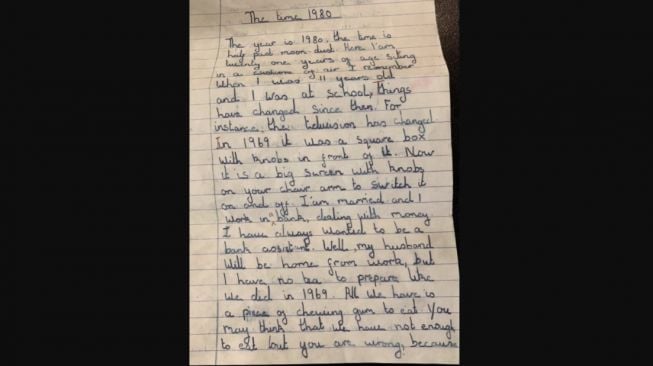 The time 1980
The year is 1980, the time is
half past moon dust. Here I'am
twenty one years of age siting
in a cushione of air I remember
When I was 11 years old
and I was at school, things
have changed since then. For
instance, the television has changed
In 1969 it was a square box
with knobs in front of it. Now
it is a big screen with knobs
on your chair arm to switch it
on and off. I'am married and I
work in a bank, dealing with money
I have always wanted to be a
bank assistant. Well, my husband
will be home from work, but
I have no tea to prepare like
we did in 1969. All we have is
a piece of chewing gum to eat. You
may think that we have not enough
to eat but you are wrong, because